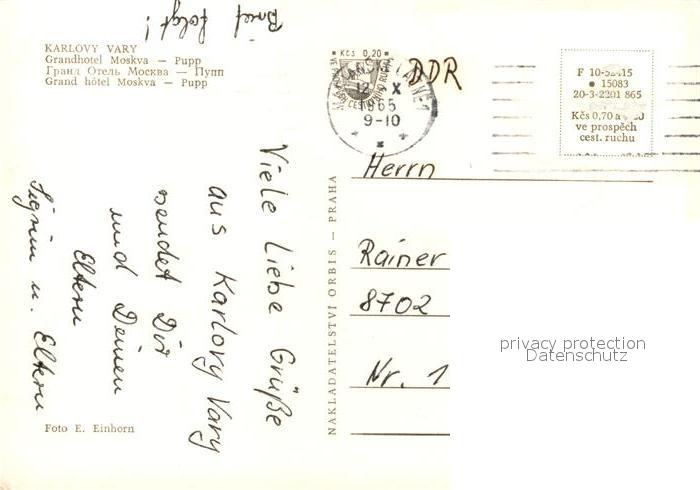 Brief folgt!
KARLOVY VARY
Grandhotel Moskva — Pupp
Гранд Отель Москва — Пупп
Grand hôtel Moskva — Pupp
Viele liebe Grüße
aus Karlovy Vary
sendet Dir
und Deinen
Eltern
Sigrun u. Eltern
Foto E. Einhorn
NAKLADATELSTVÍ ORBIS — PRAHA
Kčs 0,20
12 X
1965
9-10
DDR
15083
20-3-2201 865
Kčs 0,70
ve prospěch
cest. ruchu
Herrn
Rainer
8702
Nr. 1
privacy protection
Datenschutz